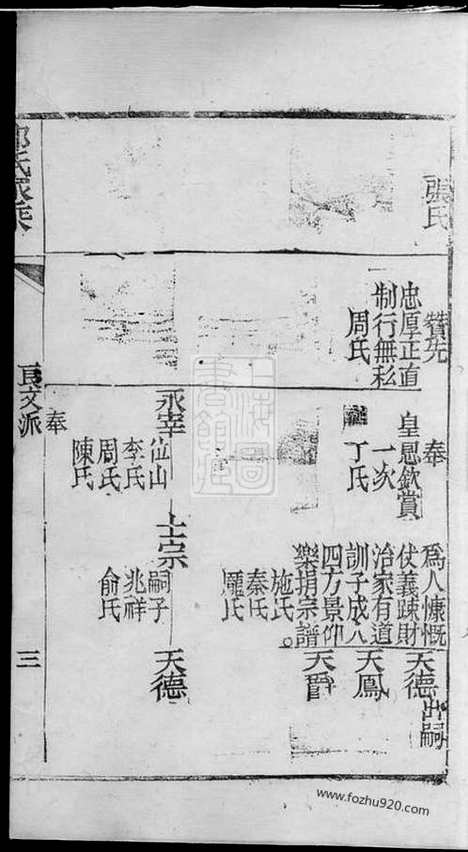 張氏
贊先
忠厚正直
制行無私
周氏
奉
皇恩欽賞
一次
丁氏
為人慷慨
仗義疎財
治家有道
訓子成人
四方景仰
樂捐宗譜
施氏
秦氏
龐氏
天德出嗣
天鳳
天爵
永幸
位山
李氏
周氏
陳氏
奉
士宗
嗣子
兆祥
俞氏
天德
氏家乘
良文派
三
上海圖書館藏
www.fozhu920.com